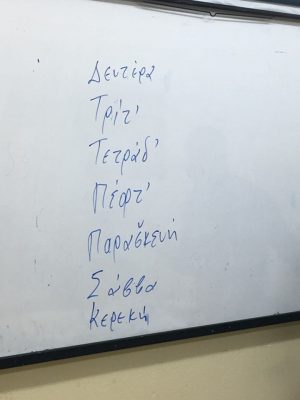 Δευτέρα
Τρίτ'
Τετράδ'
Πέφτ'
Παρασ̌κευή
Σάββα
Κερεκή